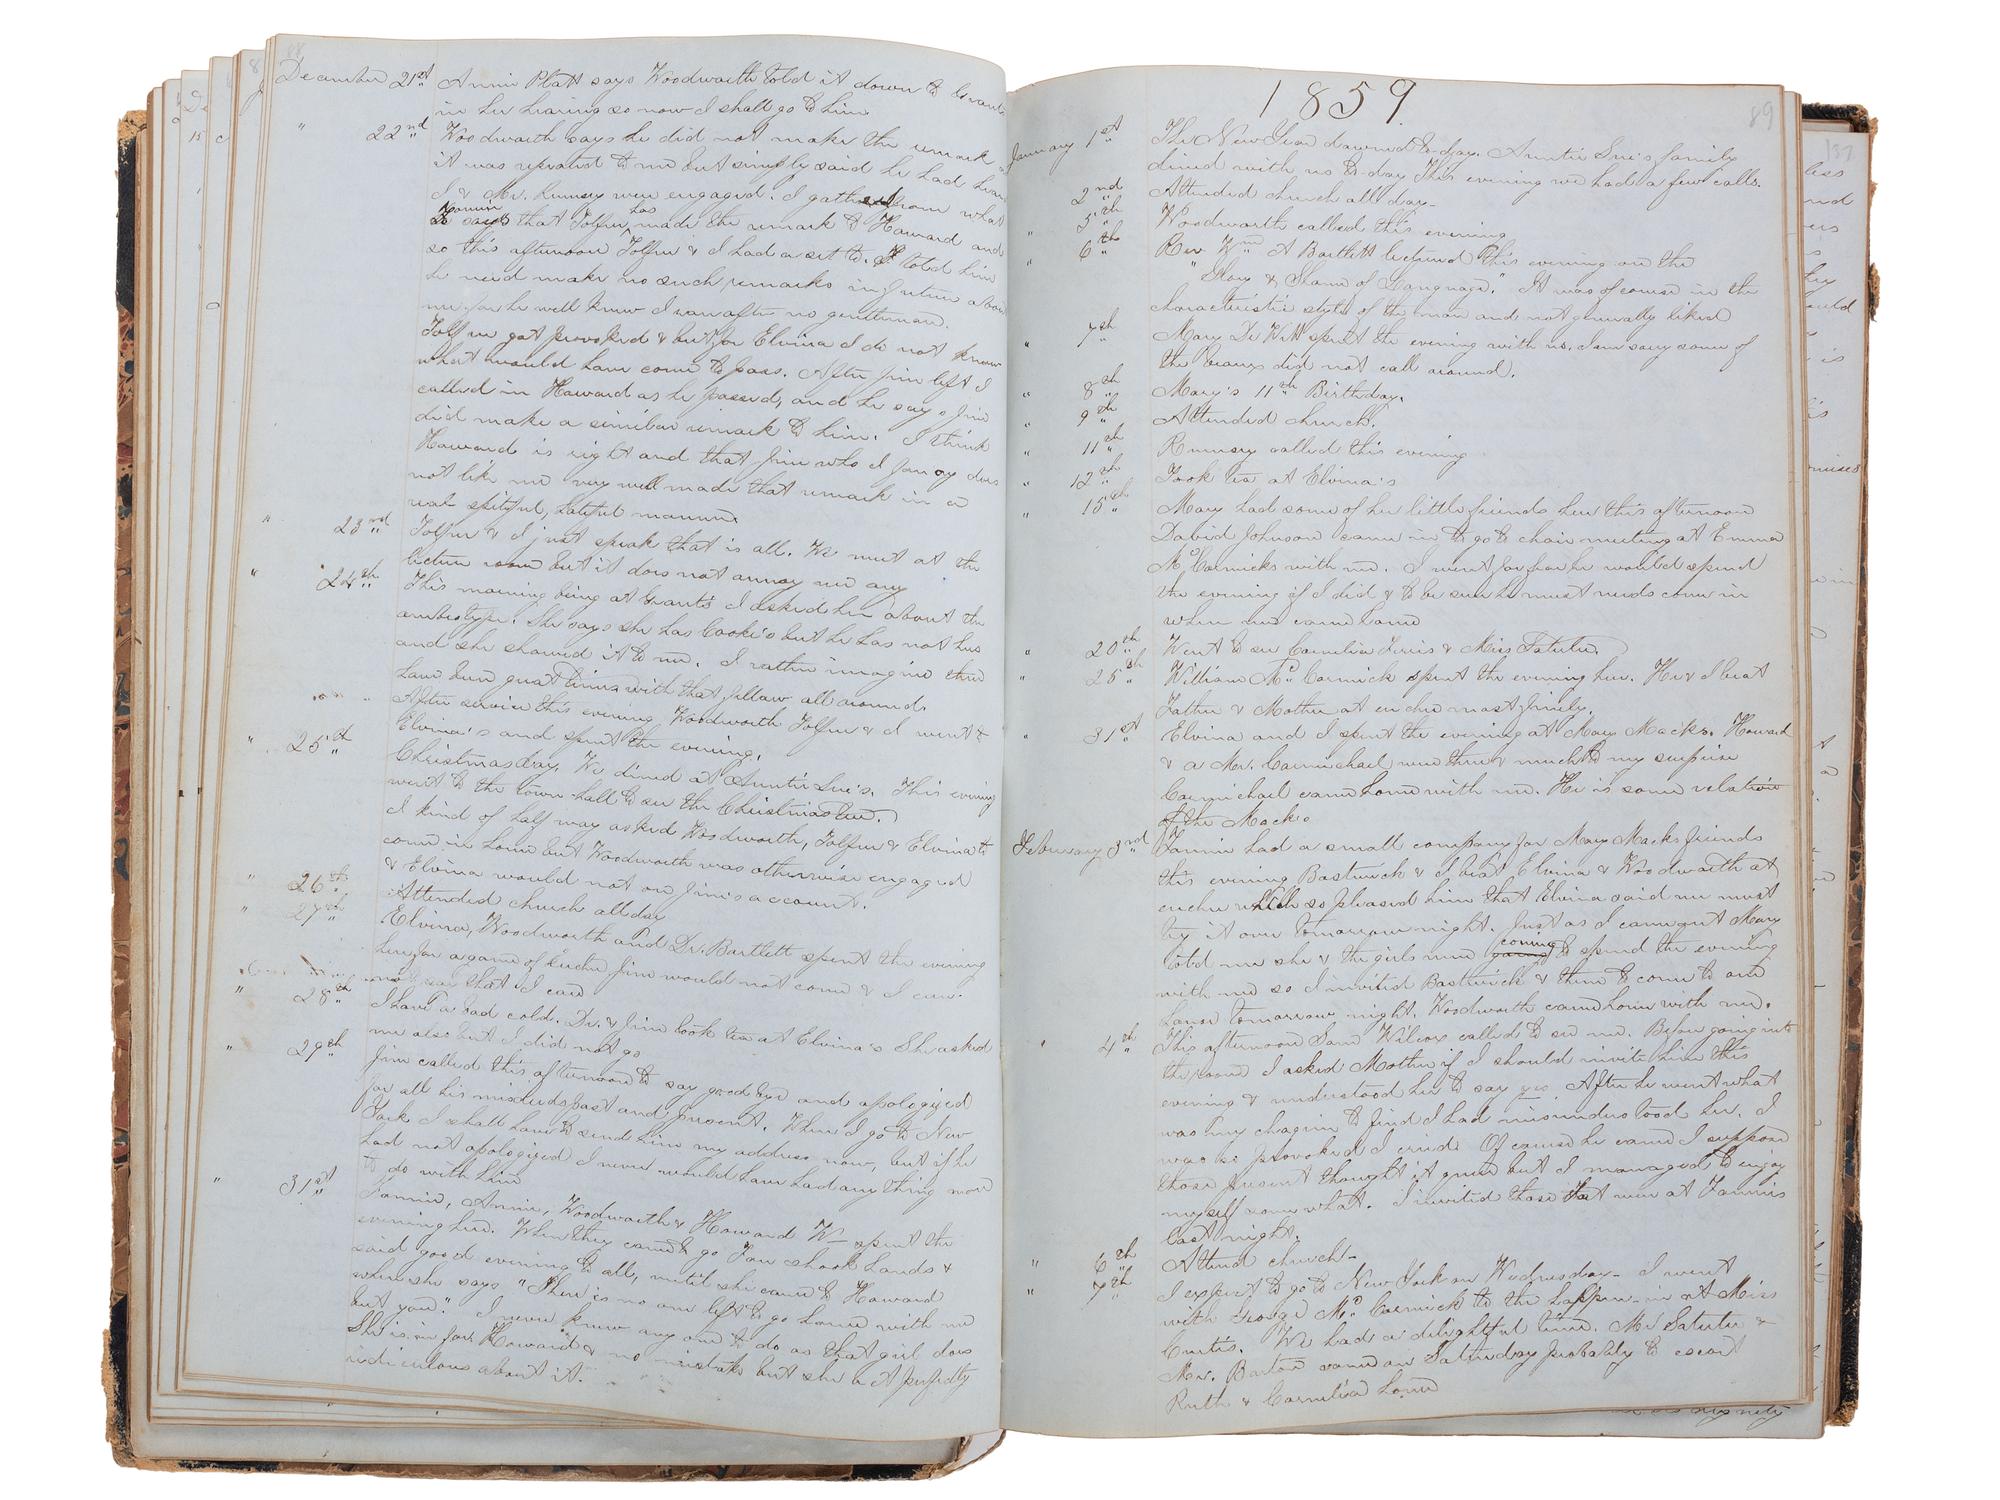 88
December 21st Annie Platt says Woodworth told it down to Grants
in her hearing so now I shall go to him.
" 22nd Woodworth says he did not make the remark as
it was repeated to me but simply said he had heard
I & Mr. Rumsey were engaged. I gathered from what
Fannie
he says that Tolfree has made the remark to Howard and
so this afternoon Tolfree & I had a set to. I told him
he need make no such remarks in future about
me for he well knew I ran after no gentleman.
Tolfree got provoked & but for Elvina I do not know
what would have come to pass. After Jim left I
called in Howard as he passed, and he says Jim
did make a similar remark to him. I think
Howard is right and that Jim who I fancy does
not like me very well made that remark in a
real spiteful, hateful manner.
" 23rd Tolfree & I just speak that is all. We met at the
lecture room but it does not annoy me any
" 24th This morning being at Grants I asked her about the
ambrotype. She says she has Cooke's but he has not hers
and she showed it to me. I rather imagine there
have been great times with that fellow all around.
After service this evening Woodworth Tolfree & I went to
Elvina's and spent the evening.
" 25th Christmas day. We dined at Auntie Sue's. This evening
went to the town-hall to see the Christmas tree.
I kind of half way asked Woodworth, Tolfree & Elvina to
come in home but Woodworth was otherwise engaged
& Elvina would not on Jim's account.
" 26th Attended church all day
" 27th Elvina, Woodworth and Dr. Bartlett spent the evening
here for a game of euchre Jim would not come & I can
not say that I care
" 28th I have a bad cold. Dr. & Jim took tea at Elvina's She asked
me also but I did not go
" 29th Jim called this afternoon to say good bye and apologized
for all his misdeeds past and present. When I go to New
York I shall have to send him my address now, but if he
had not apologized I never would have had any thing more
to do with him
" 31st Fannie, Annie, Woodworth & Howard Wm spent the
evening here. When they came to go Fan shook hands &
said good evening to all, until she came to Howard
when she says "There is no one left to go home with me
but you". I never knew any one to do as that girl does
She is in for Howard & no mistake but she acts perfectly
ridiculous about it.
1859.
89
January 1st The New Year dawned to-day. Auntie Sue's family
dined with us to-day This evening we had a few calls.
" 2nd Attended church all day-
" 5th Woodworth called this evening
" 6th Rev. Wm A Bartlett lectured this evening on the
"Glory & Shame of Language." It was of course in the
characteristic style of the man and not generally liked
" 7th Mary De Witt spent the evening with us. I am sorry some of
the beaux did not call around.
" 8th Mary's 11th Birthday.
" 9th Attended church.
" 11th Rumsey called this evening
" 12th Took tea at Elvina's
" 15th Mary had some of her little friends here this afternoon
David Johnson came in to go to choir meeting at Emma
McCormicks with me. I went for fear he would spend
the evening if I did & to be sure he must needs come in
when we came home
" 20th Went to see Cornelia Ferris & Miss
" 25th William McCormick spent the evening here. He & I beat
Father & Mother at euchre most finely.
" 31st Elvina and I spent the evening at Mary Macks. Howard
& a Mr. Carmichael were there & much to my surprise
Carmichael came home with me. He is some relation
of the Macks
February 3rd Fannie had a small company for Mary Macks friends
this evening Bostwick & I beat Elvina & Woodworth at
euchre which so pleased him that Elvina said we must
try it over tomorrow night. Just as I came out Mary
told me she & the girls were going coming to spend the evening
with me so I invited Bostwick & them to come to our
house tomorrow night. Woodworth came home with me.
" 4th This afternoon Sam Wilcox called to see me. Before going into
the room I asked Mother if I should invite him this
evening & understood her to say yes After he went what
was my chagrin to find I had misunderstood her. I
was so provoked I cried. Of course he came I suppose
those present thought it queer but I managed to enjoy
myself some what. I invited those that were at Fannies
last night.
" 6th Attend church-
" 7th I expect to go to New York on Wednesday- I went
with George McCormick to the happen-in at Miss
Curtis. We had a delightful time. Mr &
Mr. Barton came on Saturday probably to escort
Ruth & Cornelia home
137